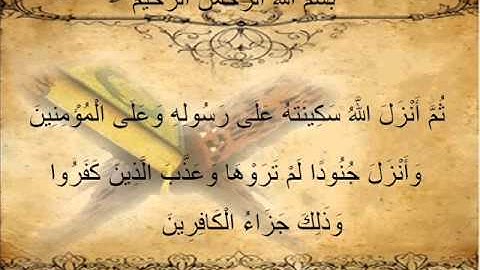 بسم الله الرحمن الرحيم
ثُمَّ أَنْزَلَ اللَّهُ سَكِينَتَهُ عَلَى رَسُولِهِ وَعَلَى الْمُؤْمِنِينَ
وَأَنْزَلَ جُنُودًا لَمْ تَرَوْهَا وَعَذَّبَ الَّذِينَ كَفَرُوا
وَذَلِكَ جَزَاءُ الْكَافِرِينَ